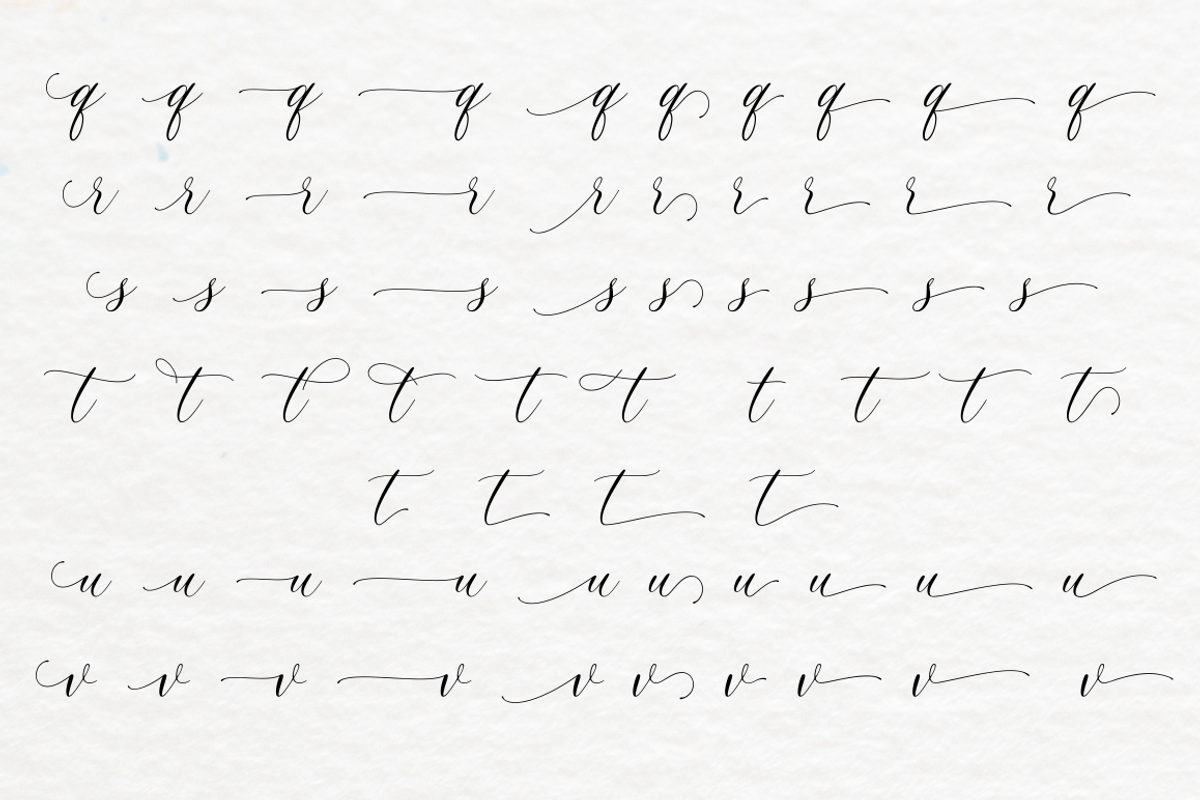 q q q q q q q q q q
r r r r r r r r r r
s s s s s s s s s s
t t t t t t t t t t
t t t t
u u u u u u u u u u
v v v v v v v v v v